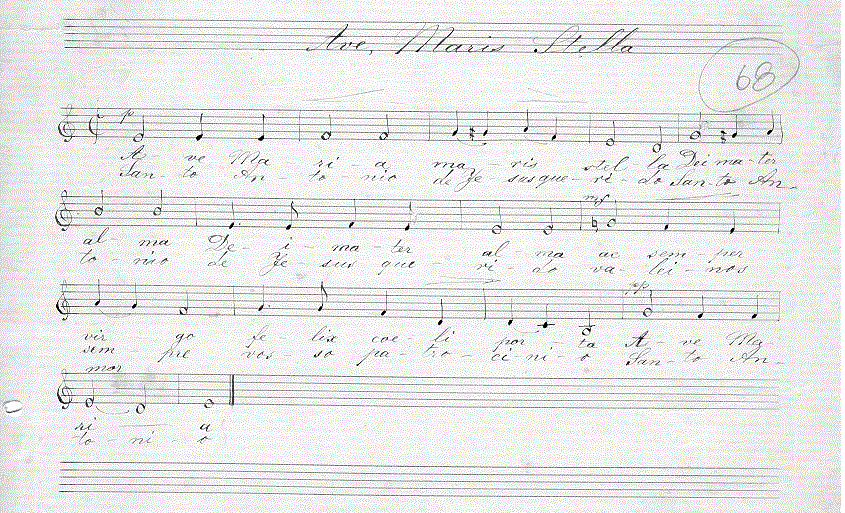 Ave, Maris Stella
68
p
A- ve Ma - ri - a ma - ris stel - la Dei ma - ter
San - to An - to nio de Je sus que - ri - do San - to An -
mf
al ma De - i - ma - ter al ma ac sem - per
to - nio de Je - sus que - ri - do va - lei - nos
pp
vir go fe lix coe - li por - ta A - ve Ma -
sem - pre vos so pa - tro - ci - ni - o San - to An -
ri a
to - ni - o